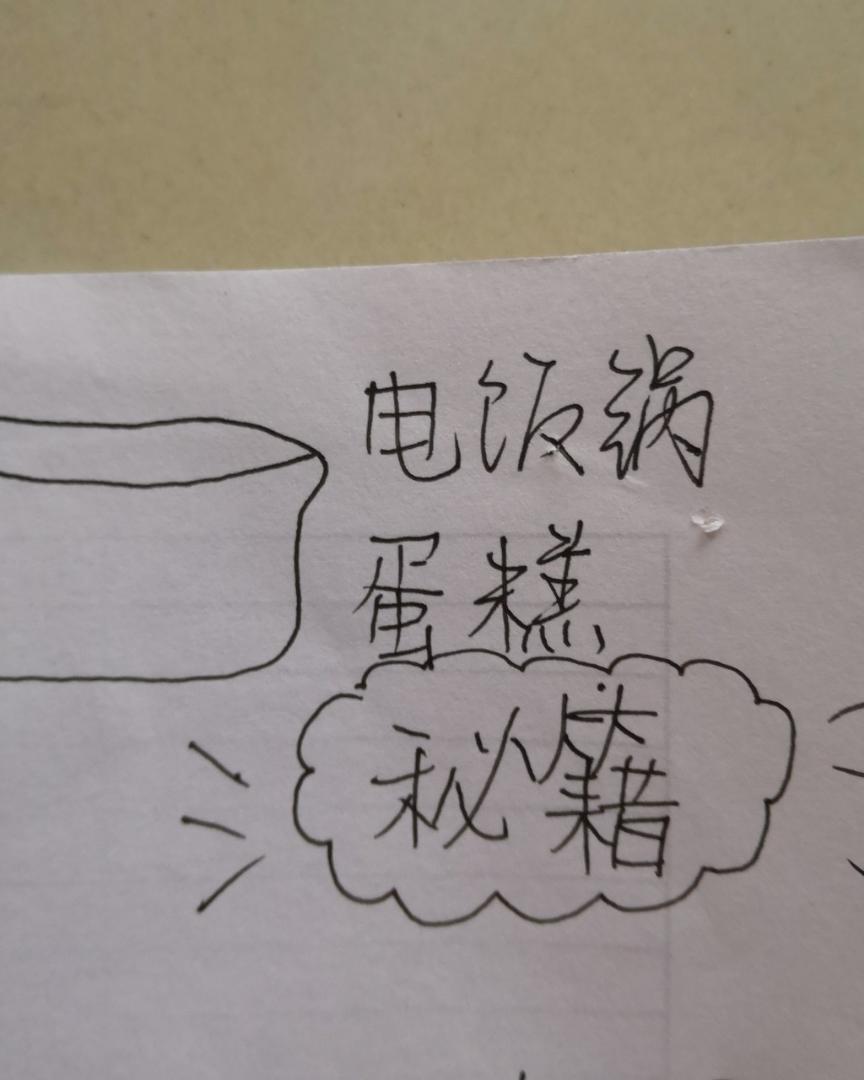 电饭锅
蛋糕
秘籍